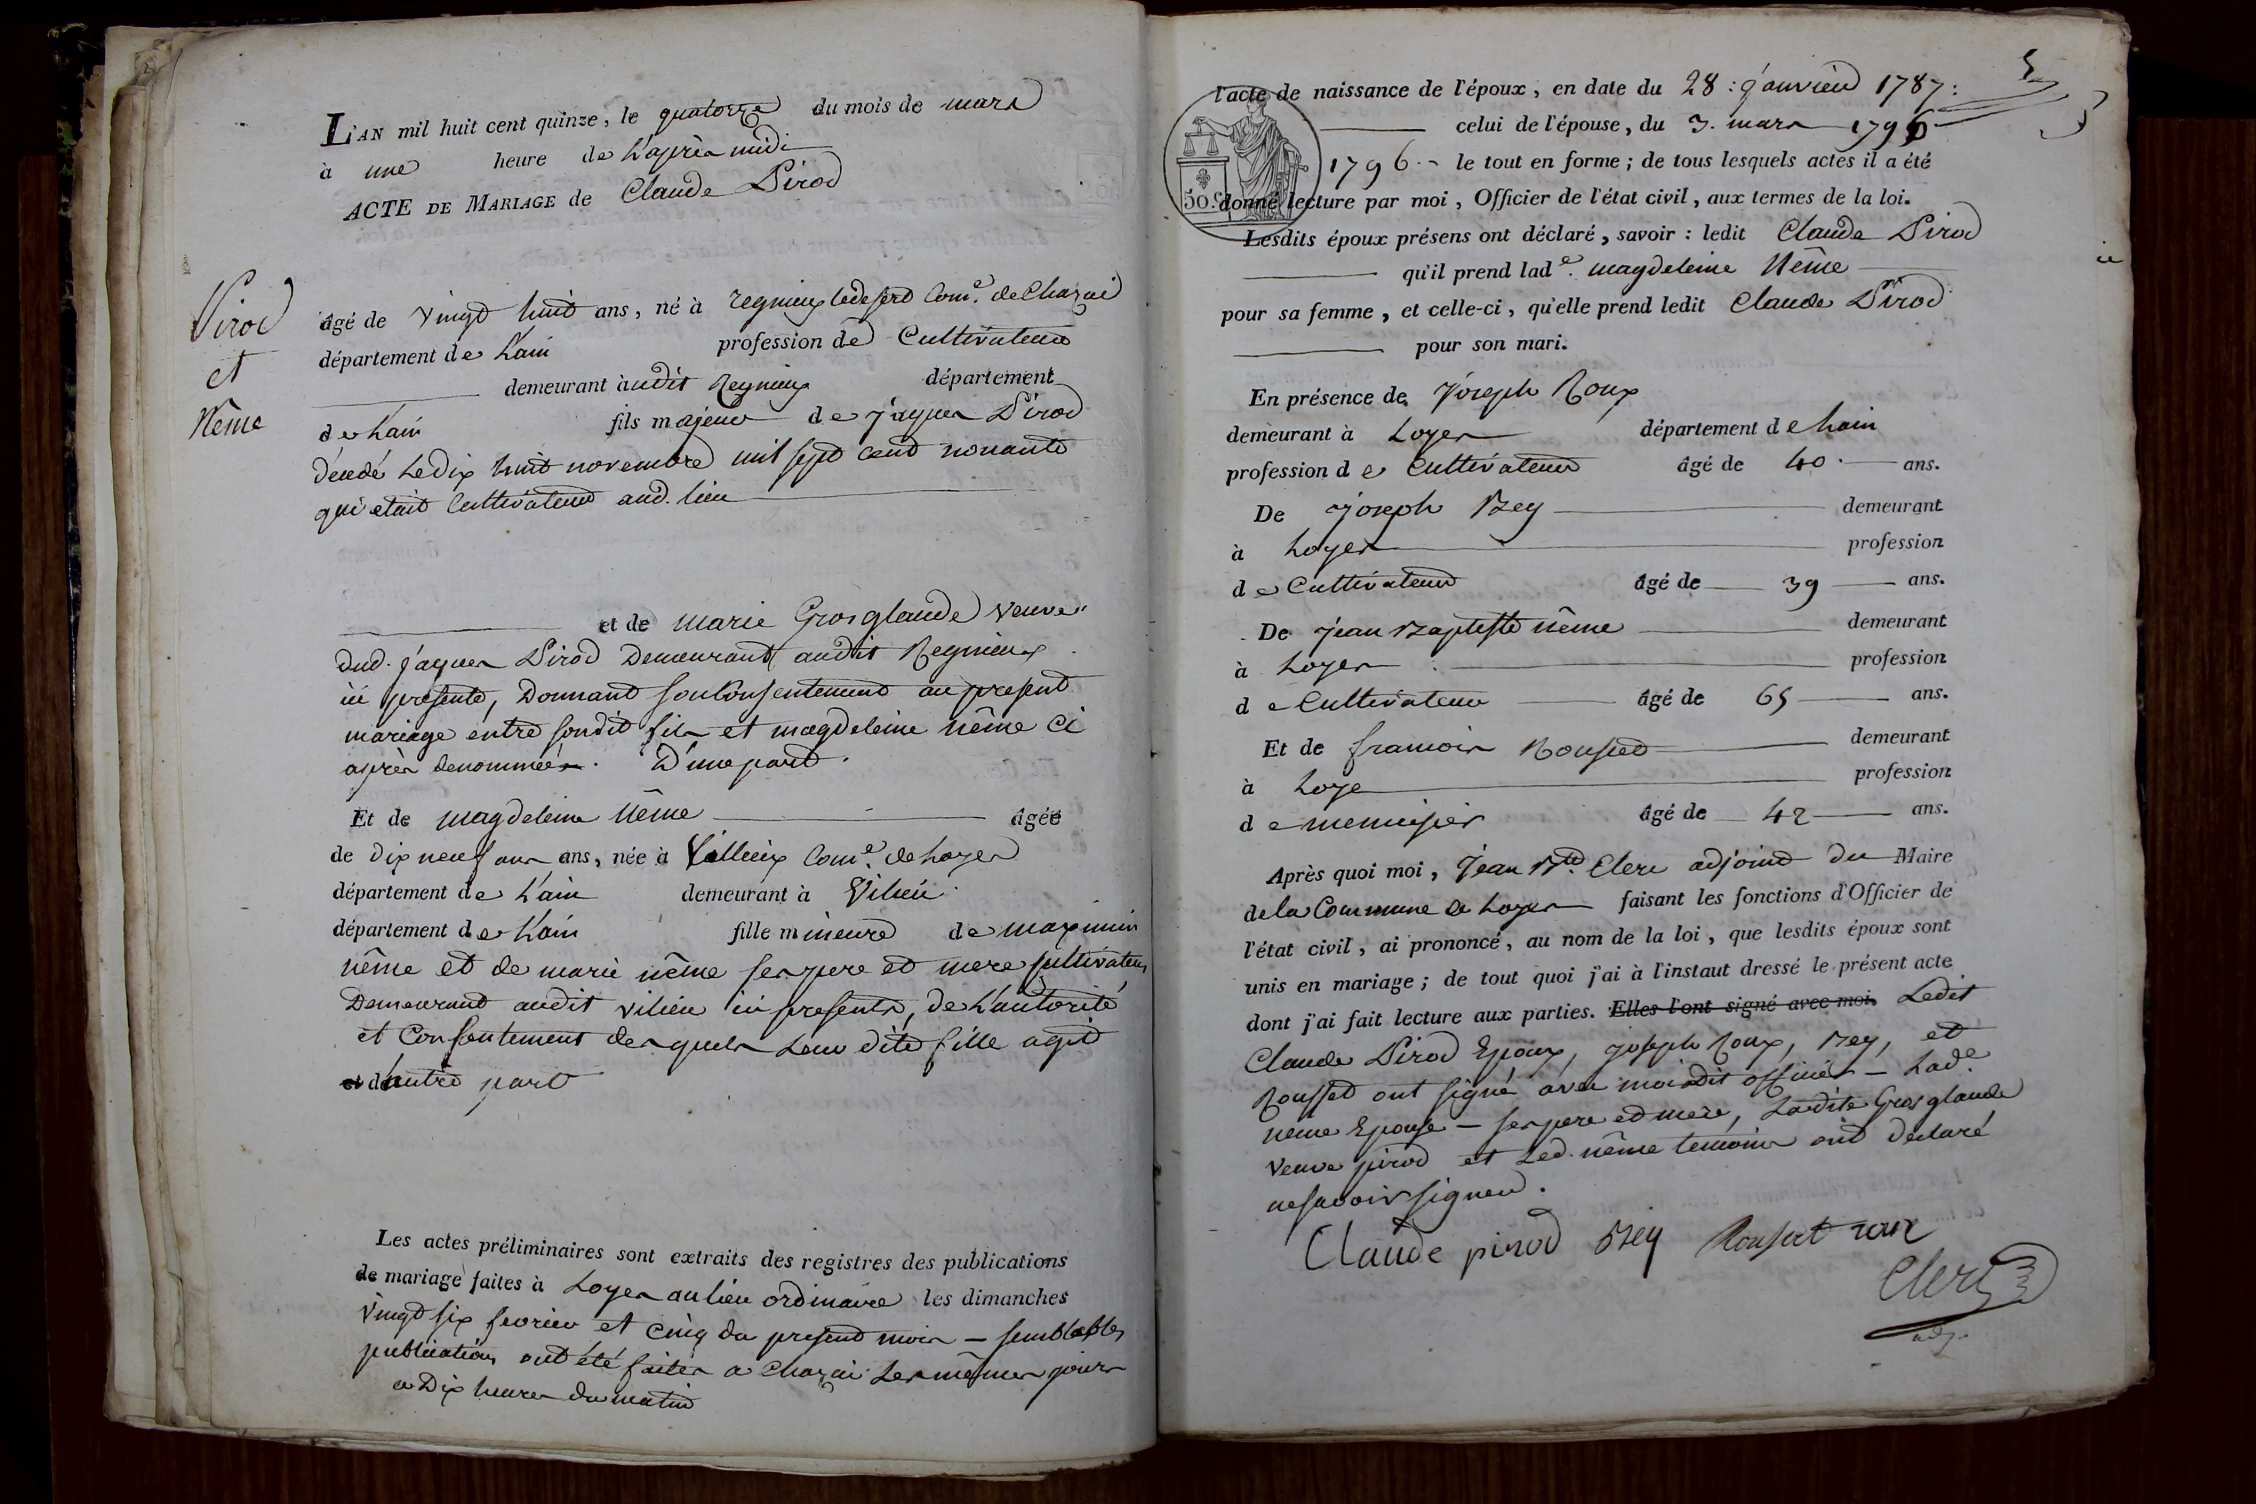 L'AN mil huit cent quinze, le quatorze du mois de mars
à une heure de L'après midi
ACTE DE MARIAGE de Claude Pirod
Pirod
et
Nême
âgé de vingt huit ans, né à regnieux ledesert Com.e de Chazai
département de L'ain profession de Cultivateur
demeurant audit Regnieux département
de L'ain fils majeur de jaques Pirod
décédé Le dix huit novembre mil sept cent nonante
qui etait Cultivateur aud. lieu
et de marie Grosglaude veuve
dud. jaques Pirod Demeurant audit Regnieux
ici presente, Donnant son Consentement au present
mariage entre sondit fils et magdeleine nême ci
après denommée. D'une part.
Et de magdeleine Nême âgée
de dix neuf ans ans, née à Villieux Com.e de Loyes
département de L'ain demeurant à Vilieu
département de L'ain fille mineure de maximin
nême et de marie nême ses pere et mere cultivateurs
Demeurant audit vilieu ici presents, de L'autorité
et Consentement desquels Leur dite fille agit
et d'autre part
Les actes préliminaires sont extraits des registres des publications
de mariage faites à Loyes au lieu ordinaire les dimanches
vingt six fevrier et cinq du present mois — semblables
publications ont été faites a Chazai Les mêmes jours
a Dix heures du matin
5
l'acte de naissance de l'époux, en date du 28 : janvier 1787 :
celui de l'épouse, du 3. mars 1796
1796. le tout en forme ; de tous lesquels actes il a été
50 C
donné lecture par moi, Officier de l'état civil, aux termes de la loi.
Lesdits époux présens ont déclaré, savoir : ledit Claude Pirod
qu'il prend lad.e magdeleine Nême
pour sa femme, et celle-ci, qu'elle prend ledit Claude Pirod
pour son mari.
En présence de Joseph Roux
demeurant à Loyes département de Lain
profession de Cultivateur âgé de 40 ans.
De Joseph Bey demeurant
à Loyes profession
de Cultivateur âgé de 39 ans.
De Jean Baptiste nême demeurant
à Loyes profession
de Cultivateur âgé de 65 ans.
Et de francois Rousset demeurant
à Loye profession
de menuisier âgé de 42 ans.
Après quoi moi, Jean B.te Clerc adjoint du Maire
de la Commune de Loyes faisant les fonctions d'Officier de
l'état civil, ai prononcé, au nom de la loi, que lesdits époux sont
unis en mariage ; de tout quoi j'ai à l'instaut dressé le présent acte
dont j'ai fait lecture aux parties. Elles l'ont signé avec moi. Ledit
Claude Pirod Epoux, joseph Roux, Bey, et
Rousset ont signé avec moi dit officier — Lad.e
neme Epouse — ses pere et mere, Ladite Gros glaude
veuve pirod et Led. nême temoins ont déclaré
ne savoir signer.
Claude pirod Bey Rousset roux
Clerc
adj.